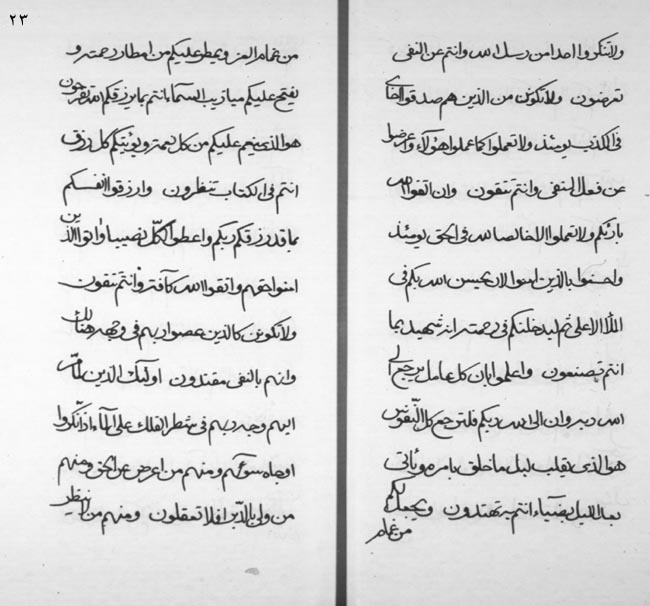 ولا تنكروا احدا من رسل الله وانتم عن النفى
تعرضون ولا تكونن من الذين هم صدقوا
فى الكذب يومئذ ولا تعملوا كما عملوا هؤلآء واعرضوا
عن فعل النفى وانتم تتقون وان اتقوا الله
بارئكم ولا تعملوا الا خالصا لله فى الحق يومئذ
واحسنوا بالذين امنوا لان يحسن الله بكم فى
الملأ الاعلى ثم ليدخلنكم فى رحمته انه شهيد بما
انتم تصنعون واعلموا بان كل عامل يرجع الى
الله ربه وان الى الله ربكم فلترجع كل النفوس
هو الذى يقلب ليل ما خلق بامره وياتى
بعد الليل بضيآء انتم به تهتدون ويجعل لكم
من غمام
٢٣
من غمام العز ويمطر عليكم من امطار رحمته و
يفتح عليكم ميازيب السمآء انتم بما يرزقكم الله تفرحون
هو الذى ينعم عليكم من كل نعمته ويؤتيكم كل رزق
انتم فى الكتاب تنظرون وارزقوا انفسكم
بما قدر رزقكم ربكم واعطوا كل نصيبا واتوا الذين
امنوا حقهم واتقوا الله كآفة وانتم تتقون
ولا تكونن كالذين عصوا ربهم فى وجهه هنالك
وانهم بالنفى مقتدون اولئك الذين لما مر
اليهم وجه ربهم فى شطر الفلك على المآء اذا نكروا
اوجاه سوئهم ومنهم من اعرض عن الحق ومنهم
من ولى بالدبر افلا تعقلون ومنهم من انتظر